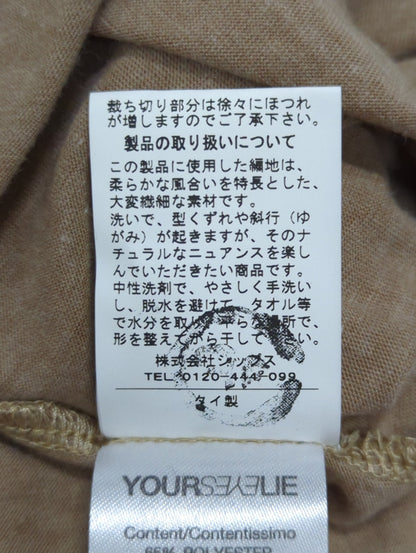 裁ち切り部分は徐々にほつれ
が増しますのでご了承下さい。
製品の取り扱いについて
この製品に使用した編地は、
柔らかな風合いを特長とした、
大変繊細な素材です。
洗いで、型くずれや斜行(ゆ
がみ)が起きますが、そのナ
チュラルなニュアンスを楽し
んでいただきたい商品です。
中性洗剤で、やさしく手洗い
し、脱水を避けて、タオル等
で水分を取り、平らな場所で、
形を整えてから干して下さい。
株式会社シップス
TEL 0120-444-099
タイ製
YOURSEYEYELIE
Content/Contentissimo
65% POLYESTER